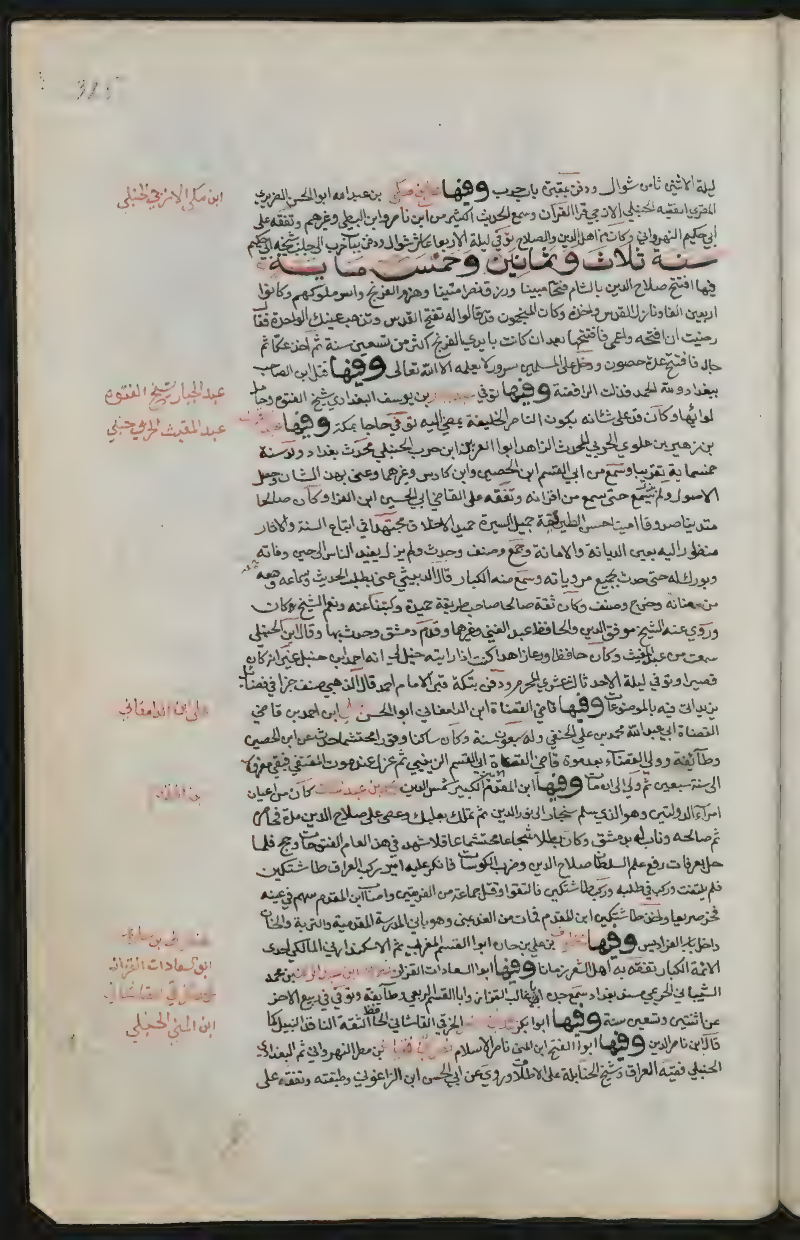 ليلة الاثنين ثامن شوال ودفن بمقبرة باب حرب وفيها بن مكي بن عبد الله ابو الحسن الضرير
ابن مكي الازجي الحنبلي
المقري الفقيه الحنبلي الازجي قرا القرآن وسمع الحديث الكثير من ابن ناصر وابن البطي وغيرهم وتفقه على
ابي حكيم النهرواني وكان من اهل الدين والصلاح توفي ليلة الاربعا شوال ودفن بباب حرب الى جانب شيخه ابي حكيم
سنة ثلاث وثمانين وخمس ماية
فيها افتتح صلاح الدين بالشام فتحا مبينا ورزق نصرا متينا وهزم الفرنج واسر ملوكهم وكانوا
اربعين الفا ونازل القدس واخذه وكان المنجمون قد قالوا له تفتح القدس وتذهب عينك الواحدة فقال
رضيت ان افتحه واعمى فافتتحها بعد ان كانت بايدي الفرنج اكثر من تسعين سنة ثم اخذ عكا ثم
جال فافتتح عدة حصون ودخل على المسلمين سرور لا يعلمه الا الله تعالى وفيها قتل ابن الصاحب
ببغداد ولله الحمد فذلت الرافضة وفيها توفي بن يوسف البغدادي شيخ الفتوة وحامل
عبد الجبار شيخ الفتوة
لوائها وكان قد علي شانه بكون الناصر الخليفة يمضي اليه توفي حاجا بمكة وفيها
عبد المغيث الحربي حنبلي
بن زهير بن علوي الحربي المحدث الزاهد ابو العز بن ابي حرب الحنبلي محدث بغداد ولد سنة
خمسماية تقريبا وسمع من ابي القسم ابن الحصين وابن كادس وغيرهما وعني بهذا الشان وحصل
الاصول ولم يزل يسمع حتى سمع من اقرانه وتفقه على القاضي ابي الحسين ابن الفرا وكان صالحا
متدينا صدوقا امينا حسن الطريقة جميل السيرة حميد الاخلاق مجتهدا في اتباع السنة والاثار
منظورا اليه بعين الديانة والامانة وجمع وصنف وحدث ولم يزل يفيد الناس الى حين وفاته
وبورك له حتى حدث بجميع مروياته وسمع منه الكبار قال الدبيثي عني بطلب الحديث وسماعه وجمعه
من مظانه وخرج وصنف وكان ثقة صالحا صاحب طريقة حميدة وكتبنا عنه ونعم الشيخ كان
وروى عنه الشيخ موفق الدين والحافظ عبد الغني وغيرهما وقدم دمشق وحدث بها وقال ابن الحنبلي
سمعت من عبد المغيث وكان حافظا ورعا زاهدا كنت اذا رايته خيل لي انه احمد ابن حنبل غير انه كان
قصيرا وتوفي ليلة الاحد ثالث عشري المحرم ودفن بتكة قبر الامام احمد قال الذهبي صنف جزا في فضائل
يزيد ات فيه بالموضوعات وفيها قاضي القضاة ابن الدامغاني ابو الحسن علي ابن احمد بن قاضي
علي ابن الدامغاني
القضاة ابي عبد الله محمد بن علي الحنفي وله سبعون سنة وكان ساكنا وقورا محتشما حدث عن ابن الحصين
وطائفة وولي القضاء بعد موت قاضي القضاة ابي القسم الزينبي ثم عزل عند موت المقتفي فبقي معزولا
الى سنة سبعين ثم ولي الى ان مات وفيها ابن المقدم الامير الكبير شمس الدين محمد بن عبد الملك كان من اعيان
بن المقدم
امراء الدولتين وهو الذي سلم سنجار الى نور الدين ثم تملك بعلبك وعصى على صلاح الدين مدة فحاصره
ثم صالحه وناب له بدمشق وكان بطلا شجاعا محتشما عاقلا شهد في هذا العام الفتوحات وحج فلما
حل بعرفات رفع علم السلطان صلاح الدين وضرب الكوسات فانكر عليه امير ركب العراق طاشتكين
فلم يلتفت وركب في طلبه وركب طاشتكين فالتقوا وقتل جماعة من الفريقين واصاب ابن المقدم سهم في عينه
فخر صريعا واخذ طاشتكين ابن المقدم فمات من الغد بمنى وهو باني المدرسة المقدمية والتربة والخان
داخل باب الفراديس وفيها بن علي بن جارة ابو القسم المغربي ثم الاسكندراني المالكي احد
مخلوف بن جارة
الائمة الكبار تفقه به اهل الثغر زمانا وفيها ابو السعادات القزاز نصر الله ابن عبد الرحمن بن محمد
ابو السعادات القزاز
الشيباني الحريمي مسند بغداد سمع جده ابا غالب القزاز وابا القسم الربعي وطائفة وتوفي في ربيع الاخر
عن اثنتين وتسعين سنة وفيها ابو بكر الخرقي القاشاني الحافظ الثقة الناقد النبيل كما
الخرقي القاشاني
قاله ابن ناصر الدين وفيها ابو الفتح ابن المني ناصر الاسلام نصر بن فتيان بن مطر النهرواني ثم البغدادي
ابن المني الحنبلي
الحنبلي فقيه العراق وشيخ الحنابلة على الاطلاق وروى عن ابي الحسن ابن الزاغوني وطبقته وتفقه على